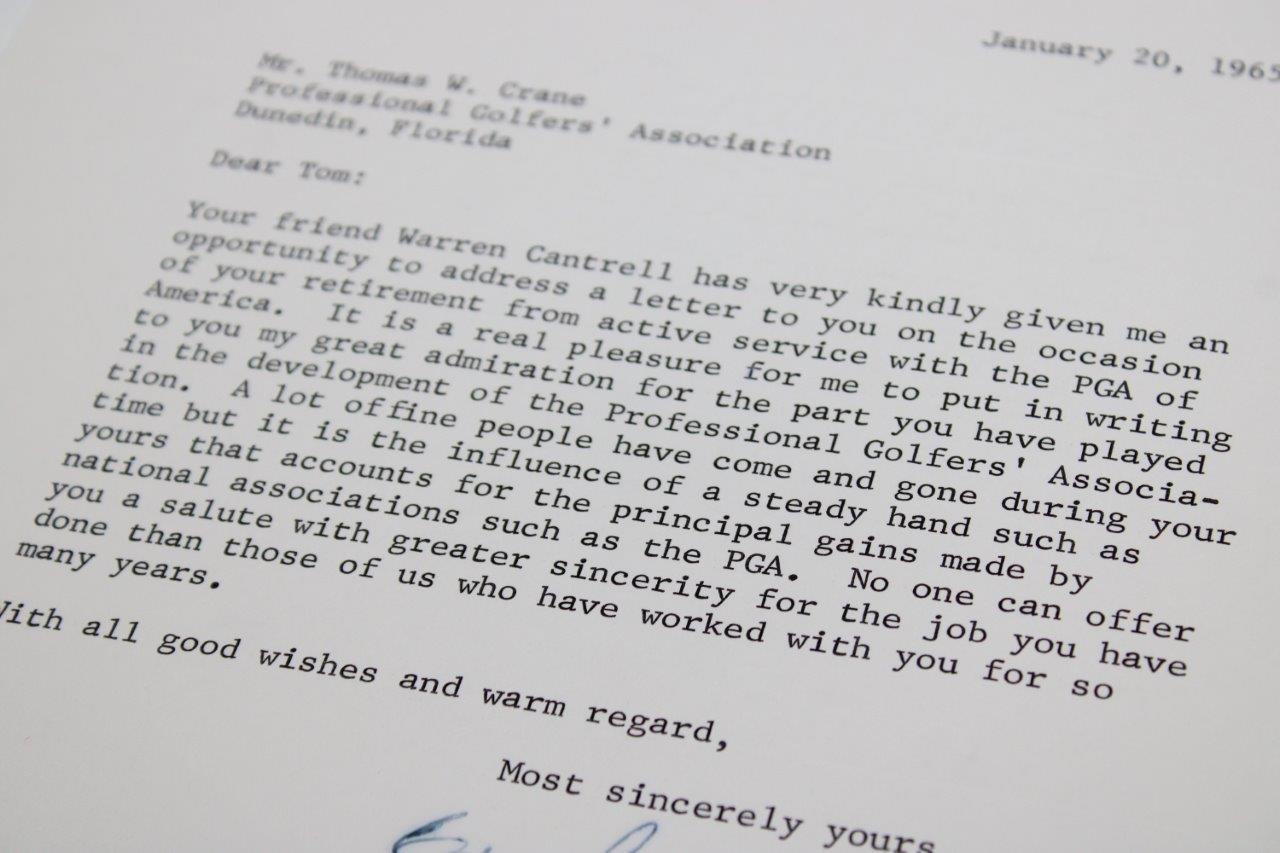 January 20, 1965
Mr. Thomas W. Crane
Professional Golfers' Association
Dunedin, Florida
Dear Tom:
Your friend Warren Cantrell has very kindly given me an
opportunity to address a letter to you on the occasion
of your retirement from active service with the PGA of
America. It is a real pleasure for me to put in writing
to you my great admiration for the part you have played
in the development of the Professional Golfers' Associa-
tion. A lot offine people have come and gone during your
time but it is the influence of a steady hand such as
yours that accounts for the principal gains made by
national associations such as the PGA. No one can offer
you a salute with greater sincerity for the job you have
done than those of us who have worked with you for so
many years.
With all good wishes and warm regard,
Most sincerely yours